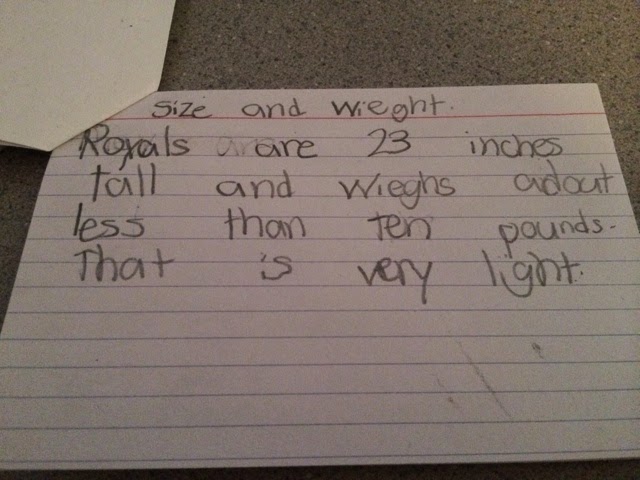 size and wieght.
Royals are 23 inches
tall and wieghs adout
less than Ten pounds.
That is very light.